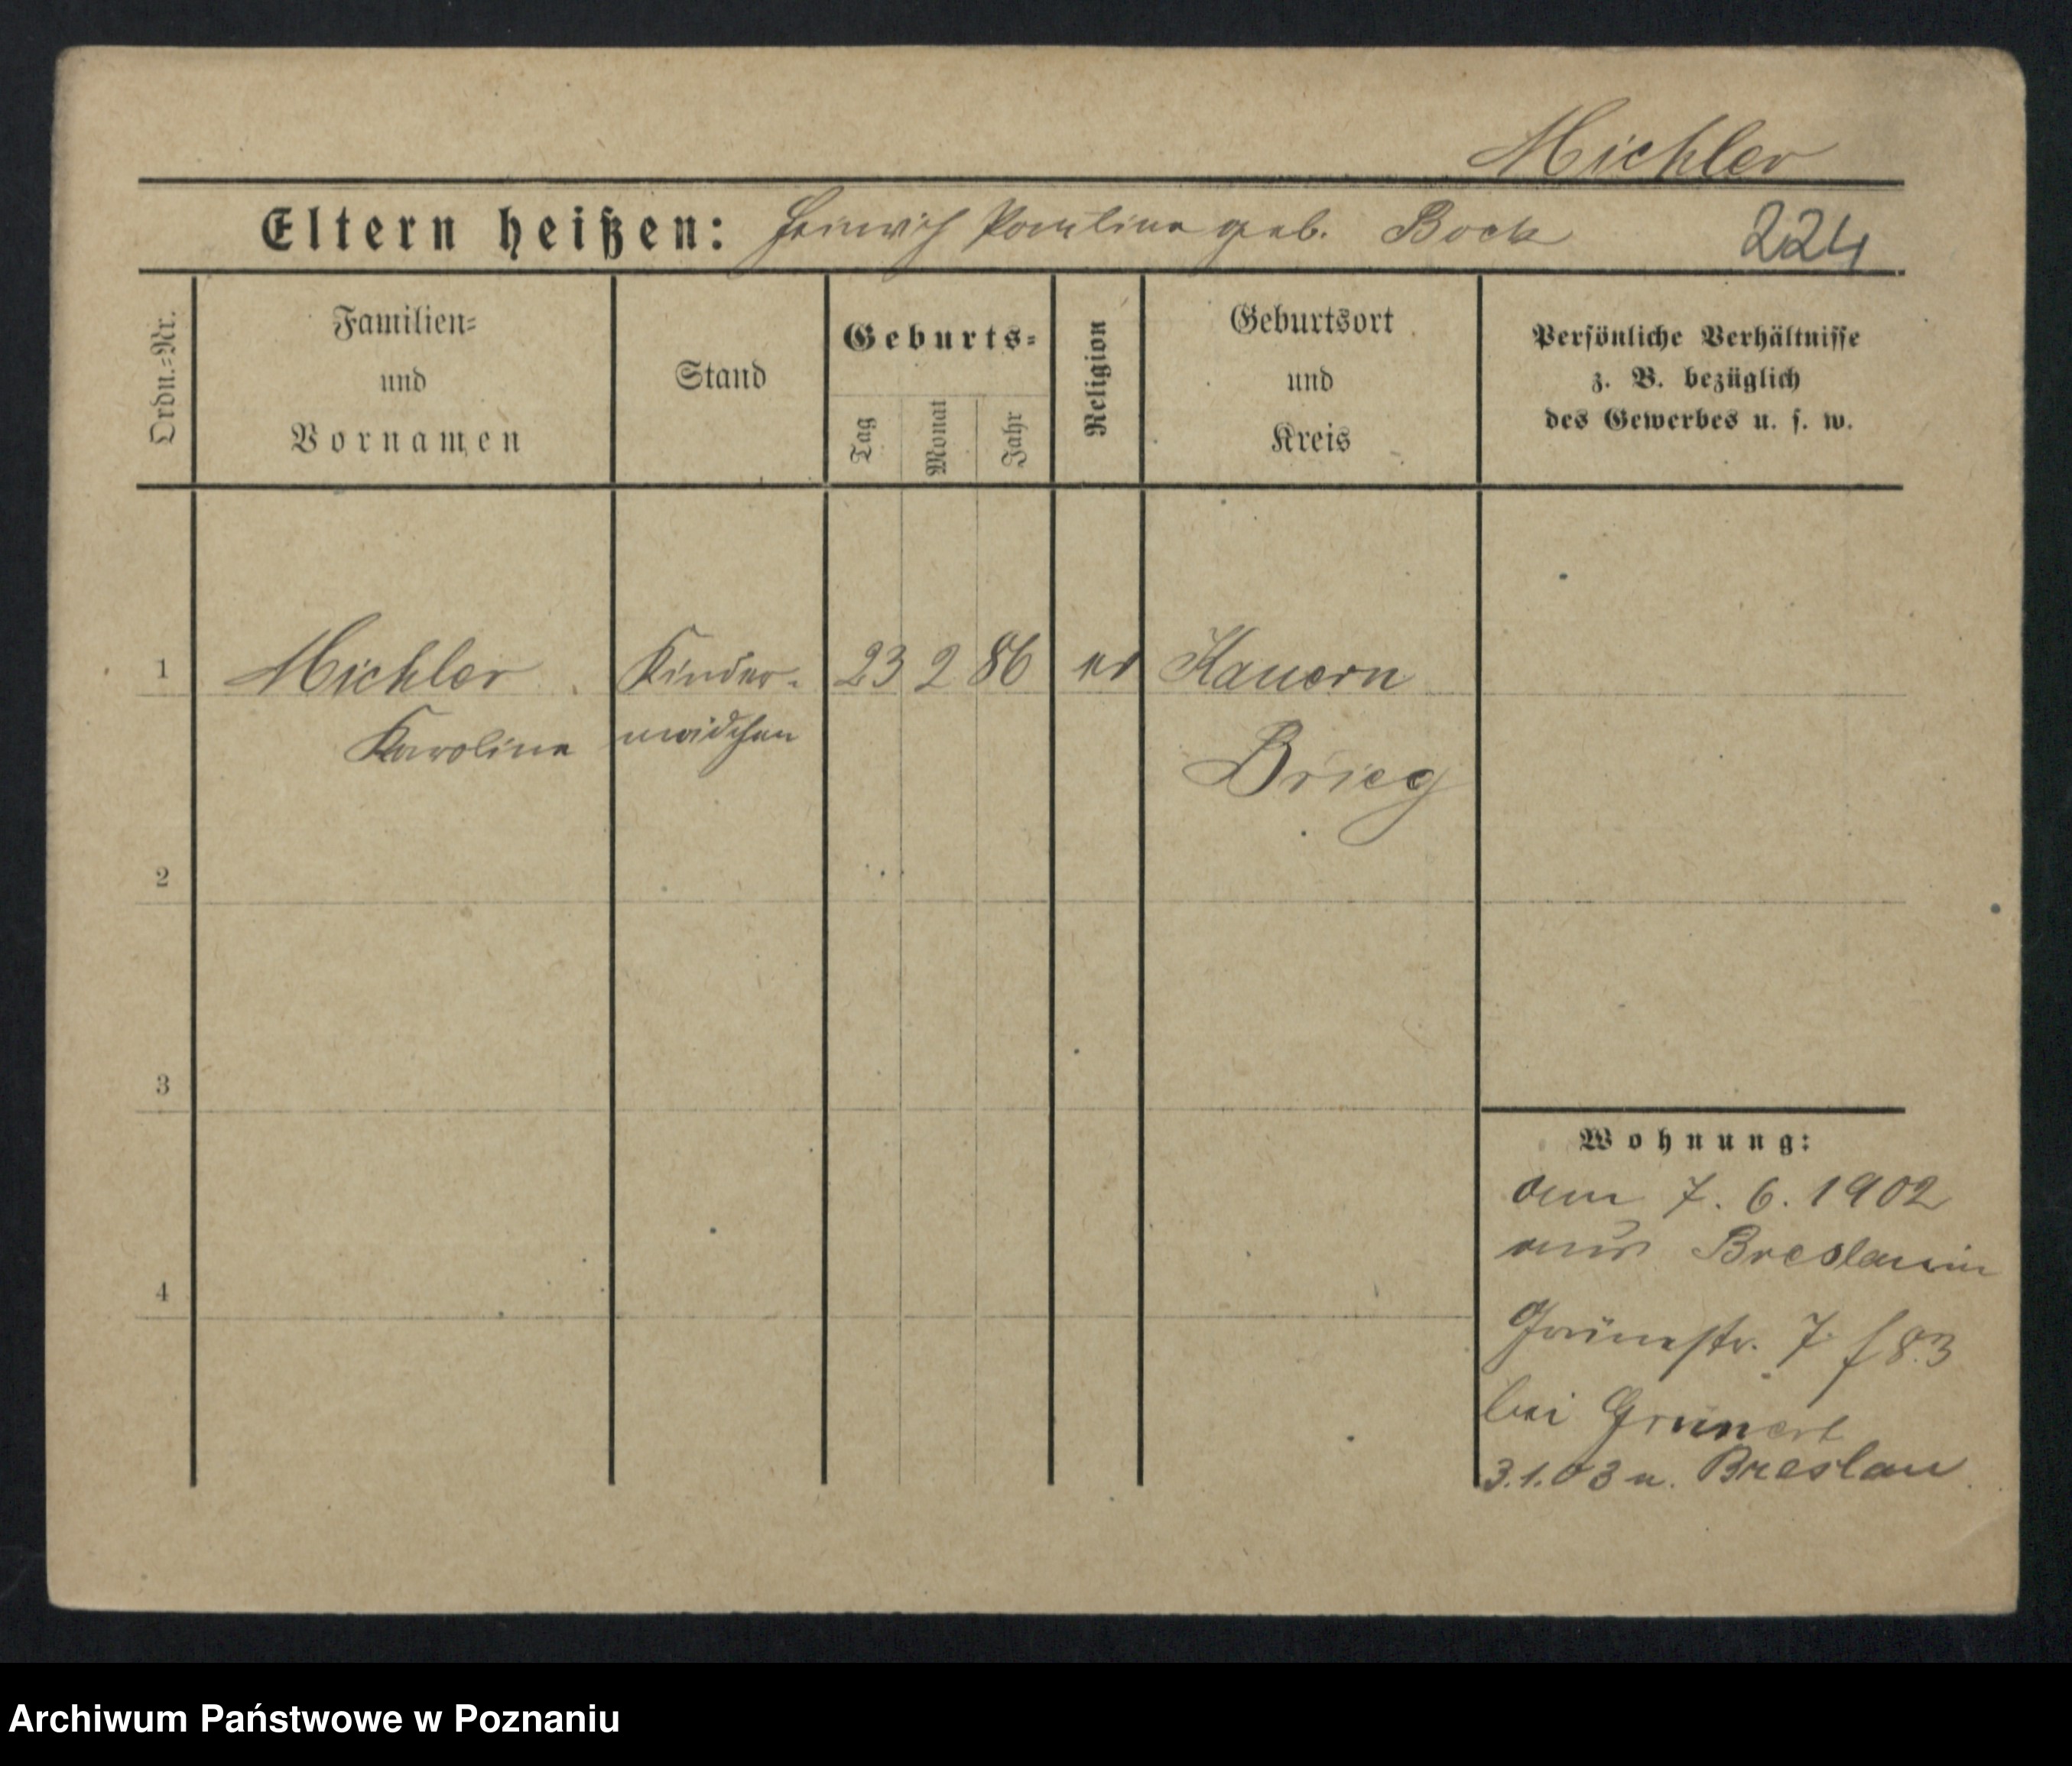 Michler
Eltern heißen: Heinrich Pauline geb. Bock 224
Ordn.=Nr.
Familien=
und
Vornamen
Stand
Geburts=
Tag
Monat
Jahr
Religion
Geburtsort
und
Kreis
Persönliche Verhältnisse
z. B. bezüglich
des Gewerbes u. s. w.
1 Michler Kinder- 23 2 86 ev Kauern
Karoline mädchen Brieg
2
3
4
Wohnung:
am 7. 6. 1902
aus Breslau in
Grünestr. 7 f 83
bei Grünert
3.1.03 n. Breslau
Archiwum Państwowe w Poznaniu